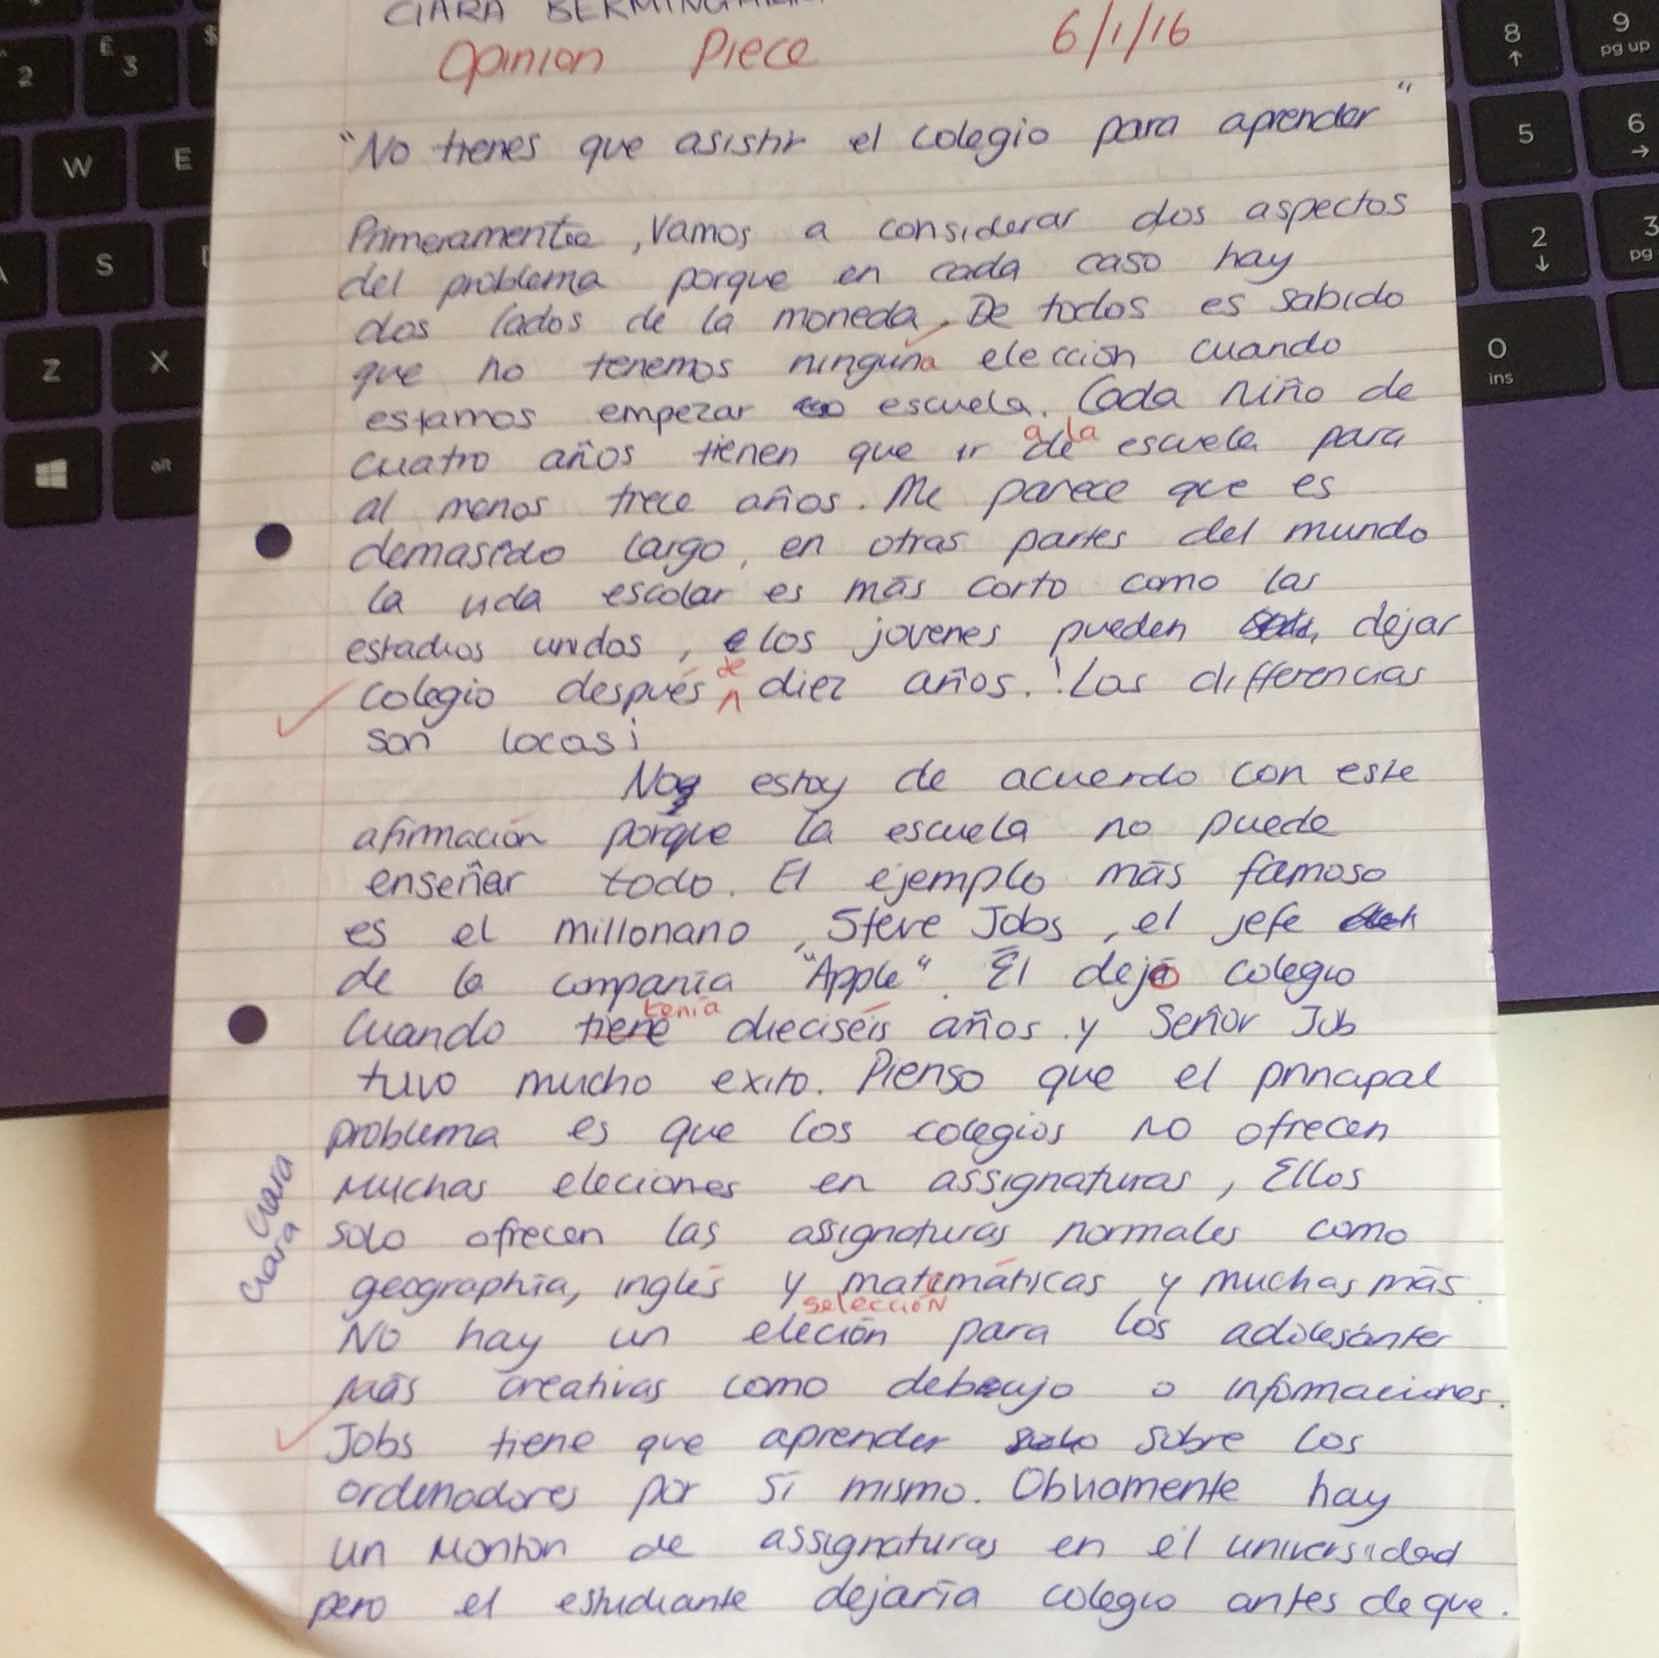 CIARA
Opinion Piece 6/1/16
"No tienes que asistir el colegio para aprender"
Primeramente, Vamos a considerar dos aspectos
del problema porque en cada caso hay
dos lados de la moneda. De todos es sabido
que no tenemos ninguna elección cuando
estamos empezar escuela. Cada niño de
cuatro años tienen que ir a la escuela para
al menos trece años. Me parece que es
demasido largo, en otras partes del mundo
la vida escolar es más corto como las
estados unidos, los jovenes pueden dejar
colegio después de diez años. ! Las differencias
son locas¡
No estoy de acuerdo con este
afirmación porque la escuela no puede
enseñar todo. El ejemplo más famoso
es el millonario, Steve Jobs, el jefe
de la compania "Apple". Él dejó colegio
cuando tenia dieciséis años y Señor Job
tuvo mucho exito. Pienso que el principal
problema es que los colegios no ofrecen
muchas eleciones en assignaturas, Ellos
solo ofrecen las assignaturas normales como
geographía, inglés y matemáticas y muchas más.
selección
No hay un eleción para los adolesantes
más creativas como debujo o informaciones.
Jobs tiene que aprender sobre los
ordenadores por sí mismo. Obviamente hay
un monton de assignaturas en el universidad
pero el estudiante dejaría colegio antes de que.
Ciara
Ciara
2
£
3
$
W
E
S
Z
X
alt
8
9
pg up
5
6
2
3
pg
0
ins